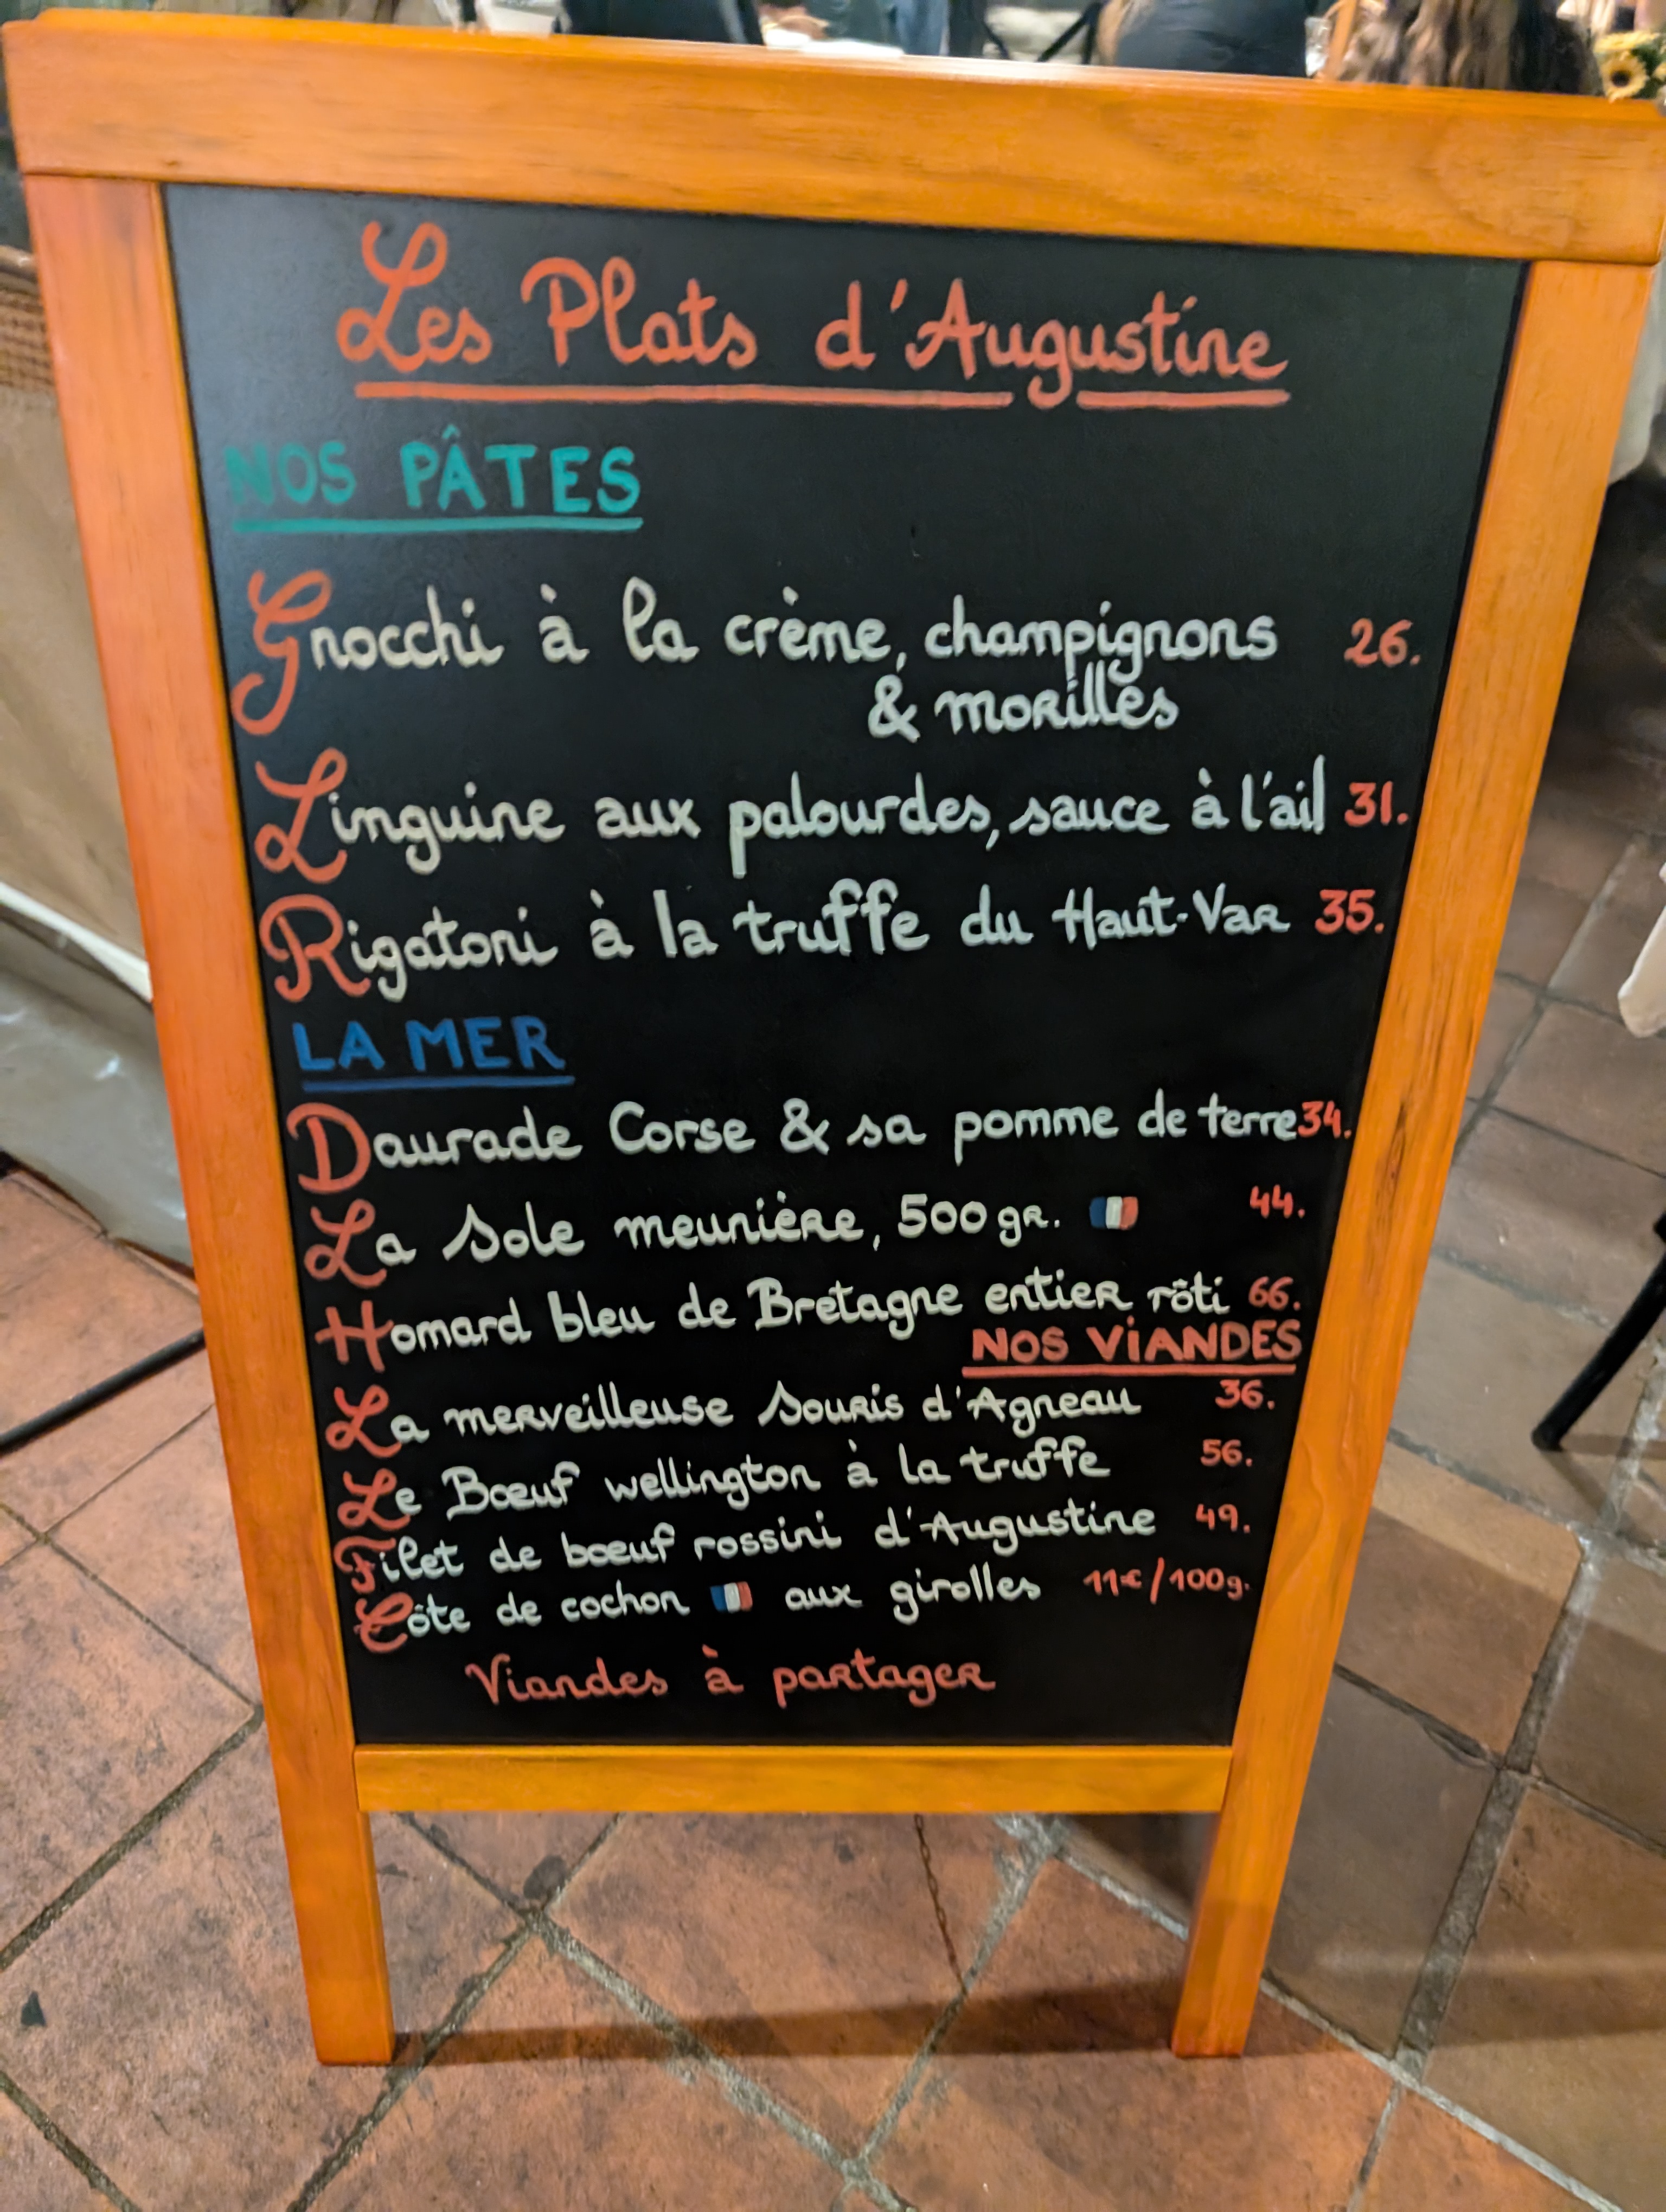 Les Plats d'Augustine
NOS PÂTES
Gnocchi à la crème, champignons 26.
& morilles
Linguine aux palourdes, sauce à l'ail 31.
Rigatoni à la truffe du Haut-Var 35.
LA MER
Daurade Corse & sa pomme de terre 34.
La Sole meunière, 500 gr. 44.
Homard bleu de Bretagne entier rôti 66.
NOS VIANDES
La merveilleuse Souris d'Agneau 36.
Le Bœuf wellington à la truffe 56.
Filet de bœuf rossini d'Augustine 49.
Côte de cochon aux girolles 11€/100g.
Viandes à partager